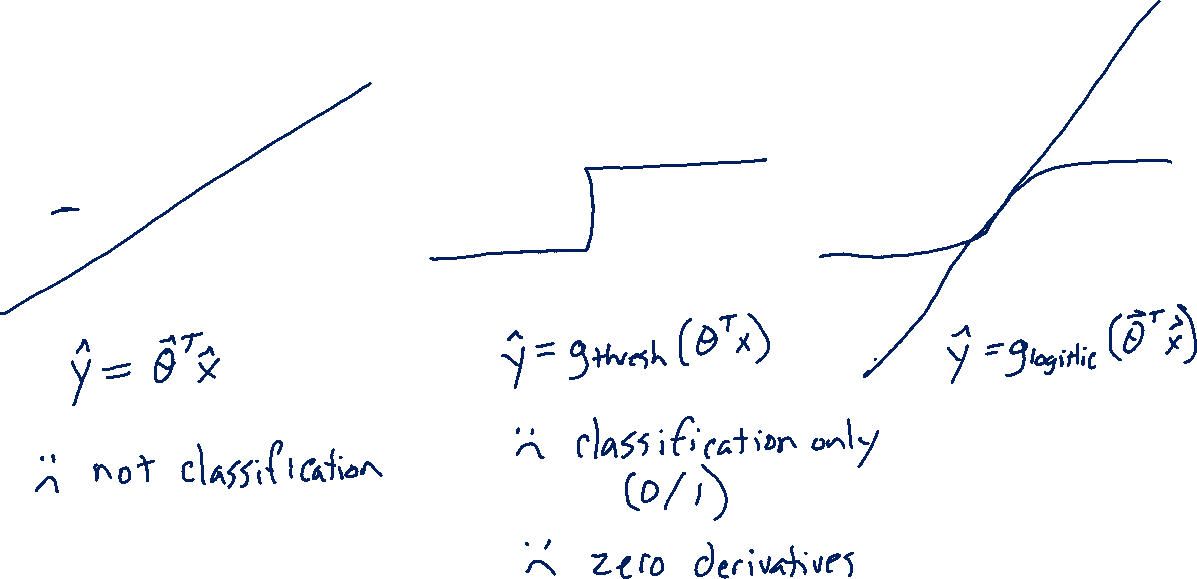 ŷ = θ⃗ᵀx⃗
not classification
ŷ = g_thresh(θᵀx)
classification only
(0/1)
zero derivatives
ŷ = g_logistic(θ⃗ᵀx⃗)